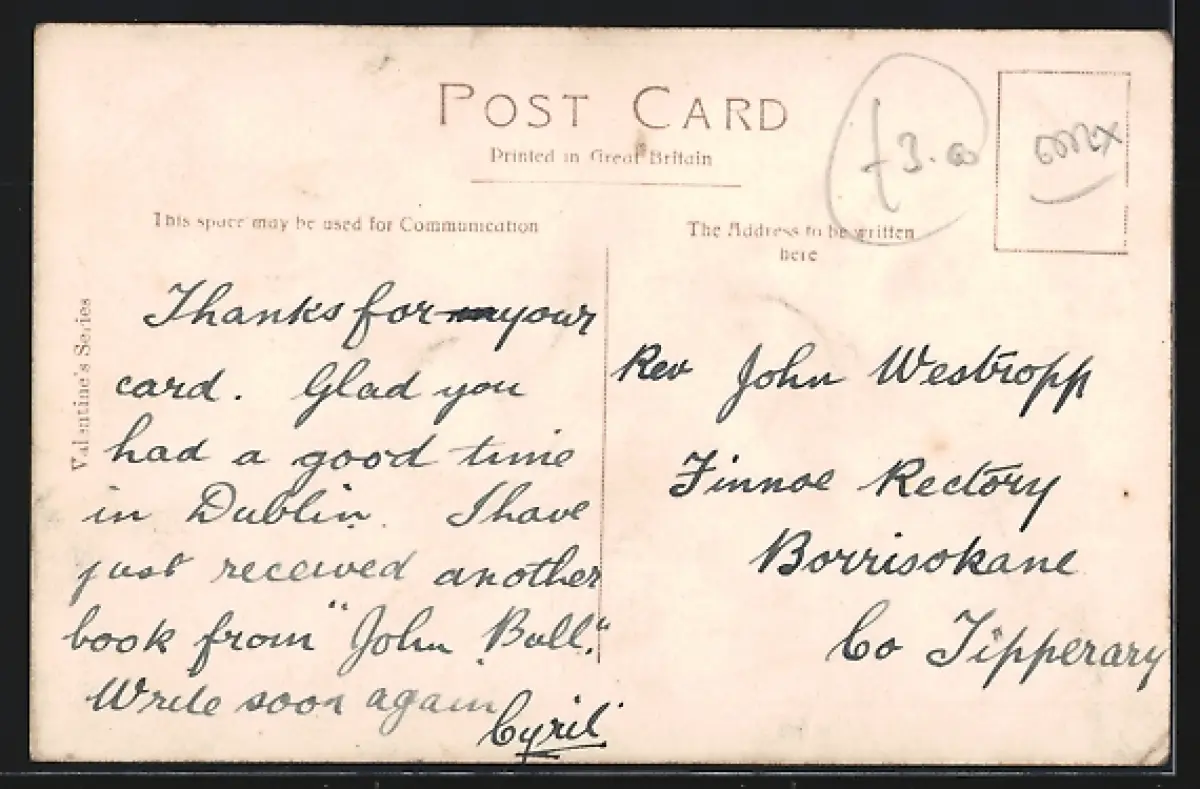 POST CARD
Printed in Great Britain
This space may be used for Communication
The Address to be written
here
£3.00
Valentine's Series
Thanks for your
card. Glad you
had a good time
in Dublin. I have
just received another
book from "John Bull."
Write soon again
Cyril
Rev John Westropp
Finnoe Rectory
Borrisokane
Co Tipperary